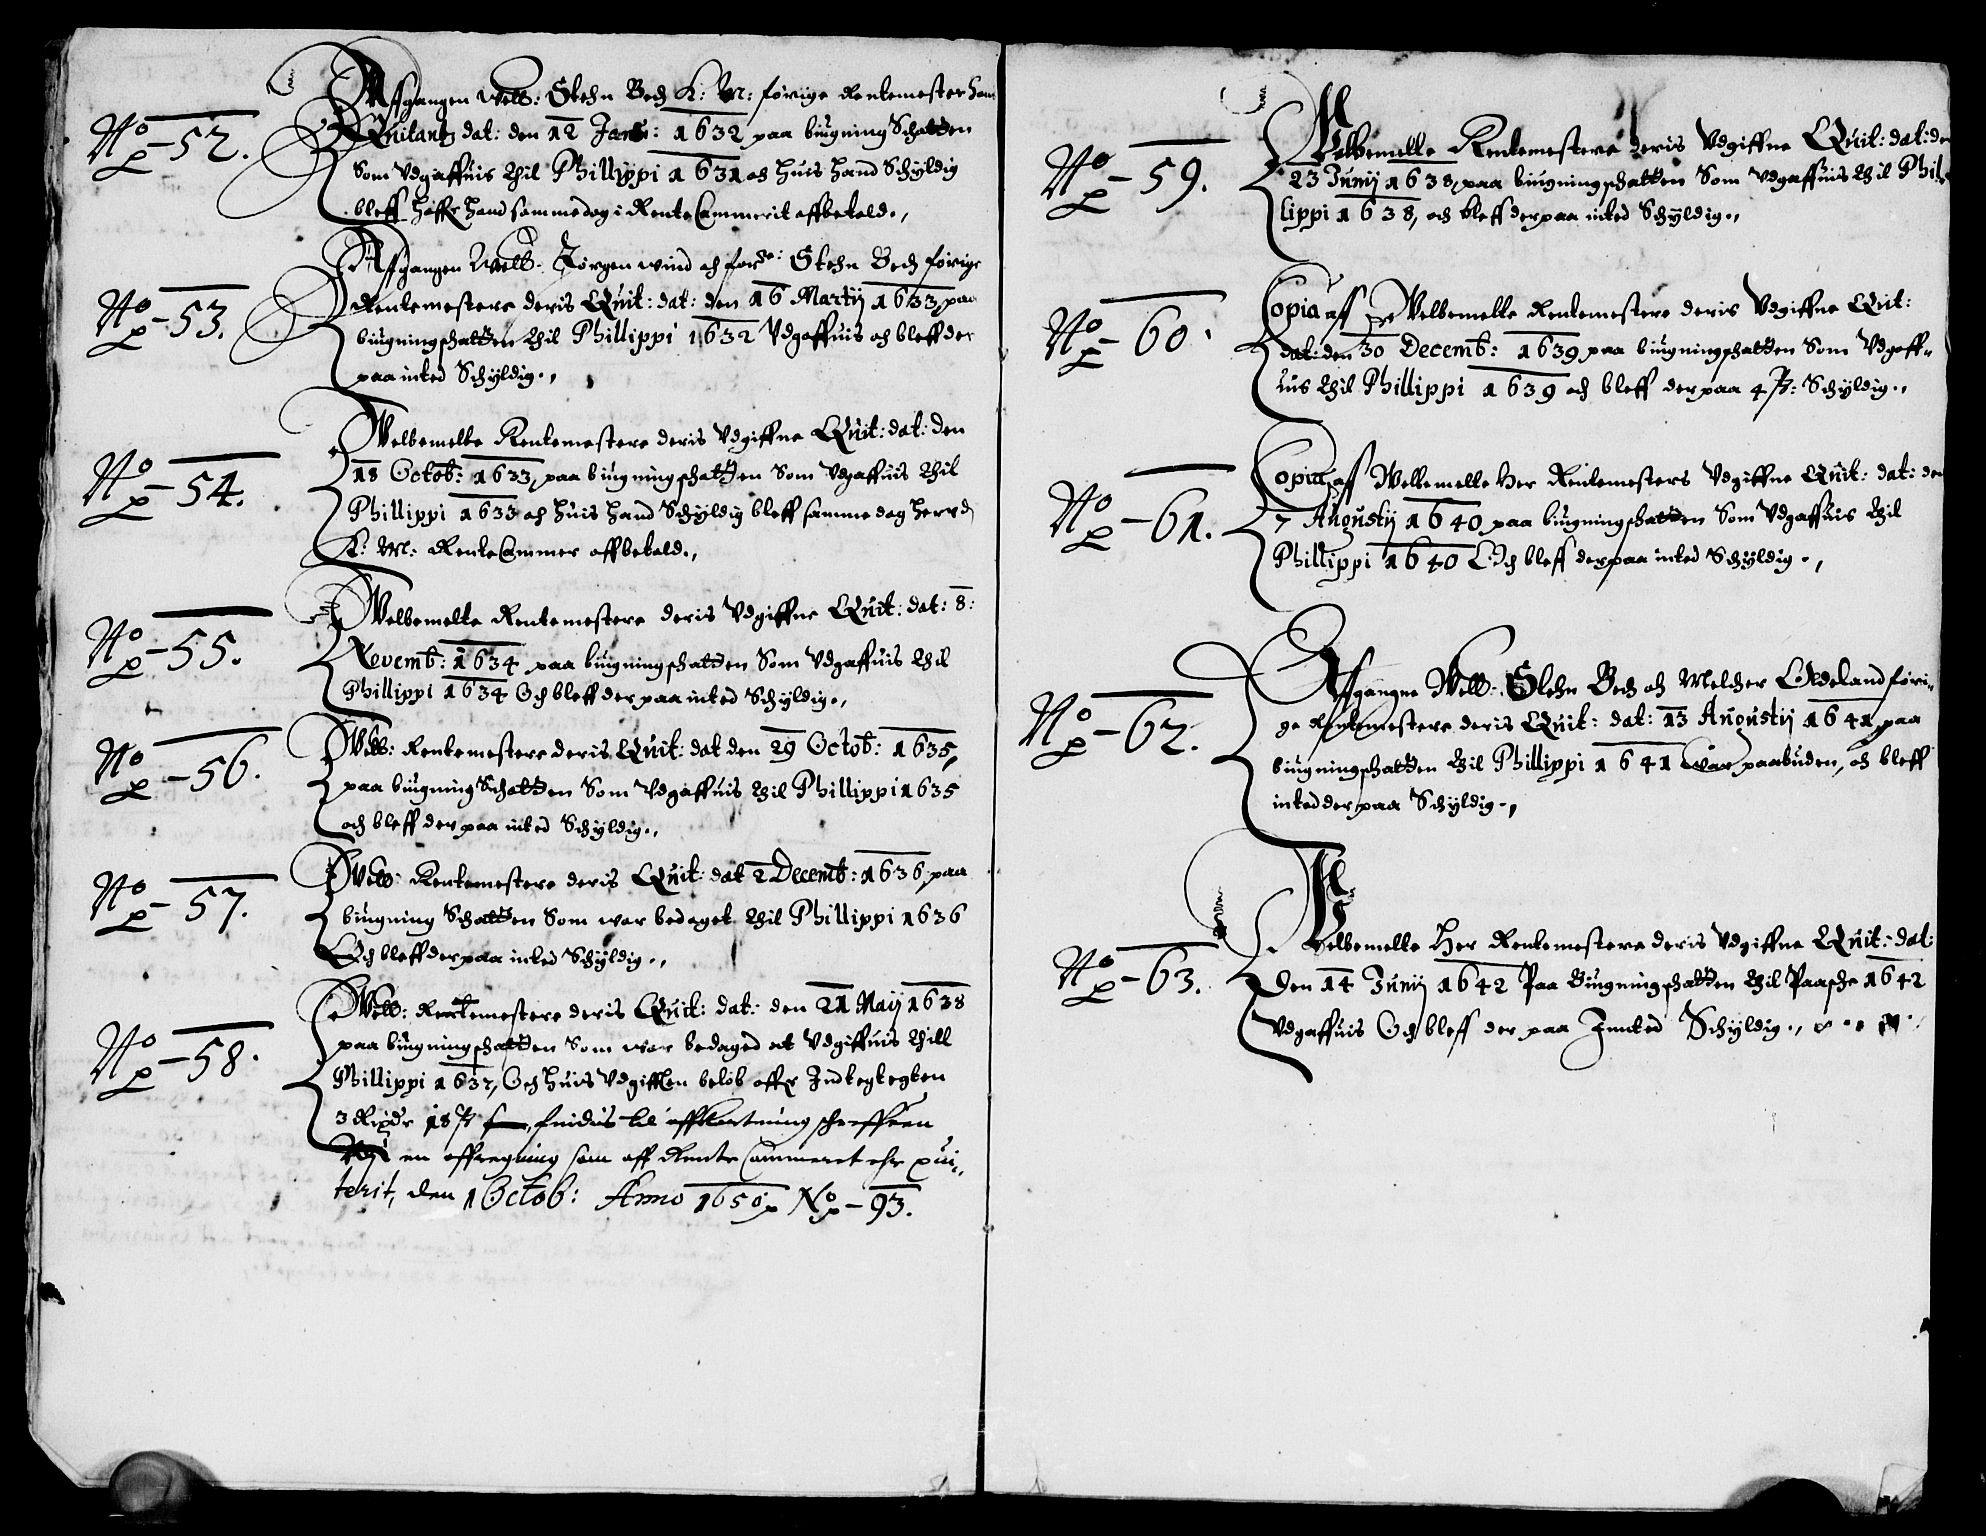 No 52. Affgangen Welb: Stehn Bech K: M: forige Rentemester hans
Quitantz dat: den 12 Janu: 1632 paa bügning Schatten
Som Vdgaffuis thil Phillippi 1631 och huis hand Schÿldig
bleff haffr hand samme dag i Rente Cammerit affbetald.,
No 53. Affgangen Welb: Jörgen wind och forne: Stehn Bech forige
Rentemestere deris Quit: dat: den 16 Martij 1633, paa
bügningschatten thil Phillippi 1632 Vdgaffuis och bleff der
paa inted Schÿldig.,
No 54. Welbemelte Rentemestere deris Vdgiffne Quit: dat: den
18 Octob: 1633, paa bügningschatten Som Vdgaffuis thil
Phillippi 1633 och huis hand Schÿldig bleff samme dag
K: M: Rente Cammer affbetald.,
No 55. Welbemelte Rentemestere deris Vdgiffne Quit: dat: 8:
Novemb: 1634 paa bügningschatten Som Vdgaffuis thil
Phillippi 1634 Och bleff der paa inted Schÿldig.,
No 56. Welb: Rentemestere deris Quit: dat den 29 Octob: 1635,
paa bügning Schatten Som Vdgaffuis thil Phillippi 1635
och bleff der paa inted Schÿldig.,
No 57. Welb: Rentemestere deris Quit: dat 2 Decemb: 1636, paa
bügning Schatten Som war bedaget thil Phillippi 1636
Och bleff der paa inted Schÿldig.,
No 58. Welb: Rentemestere deris Quit: dat: den 21 Maij 1638
paa bügningschatten Som war bedaged at Vdgiffuis thill
Phillippi 1637, Och huis Vdgifften beløb offr Indtegtegten
3 Rixdr 18 ß findis til affkortning schreffuen
Vdj en affregning som aff Rente Cammeret ehr qui-
terit, den 1 Octob: Anno 1650 No 93.
No 59. Welbemelte Rentemestere deris Vdgiffne Quit: dat: den
23 Junij 1638, paa bügningschatten Som Vdgaffuis thil Phil-
lippi 1638, och bleff der paa inted Schÿldig.,
No 60. Copia aff Welbemelte Rentemestere deris Vdgiffne Quit:
dat: den 30 Decemb: 1639 paa bügningschatten Som Vdgaff-
uis thil Phillippi 1639 och bleff der paa 4 ß: Schÿldig.,
No 61. Copia aff Welbemelte Her Rentemesters Vdgiffne Quit: dat: den
7 Augustij 1640 paa bügningschatten Som Vdgaffuis thil
Phillippi 1640 Och bleff der paa inted Schÿldig.,
No 62. Affgangne Welb: Stehn Bech och Melcher Oldeland fori-
ge Rentemestere deris Quit: dat: 13 Augustij 1641, paa
bügningschatten thil Phillippi 1641 war paabuden, och bleff
inted der paa Schÿldig.,
No 63. Welbemelte Her Rentemestere deris Vdgiffne Quit: dat:
Den 14 Junij 1642 Paa Bügningschatten thil Paasche 1642
Vdgaffuis Och bleff der paa Inted Schÿldig.,